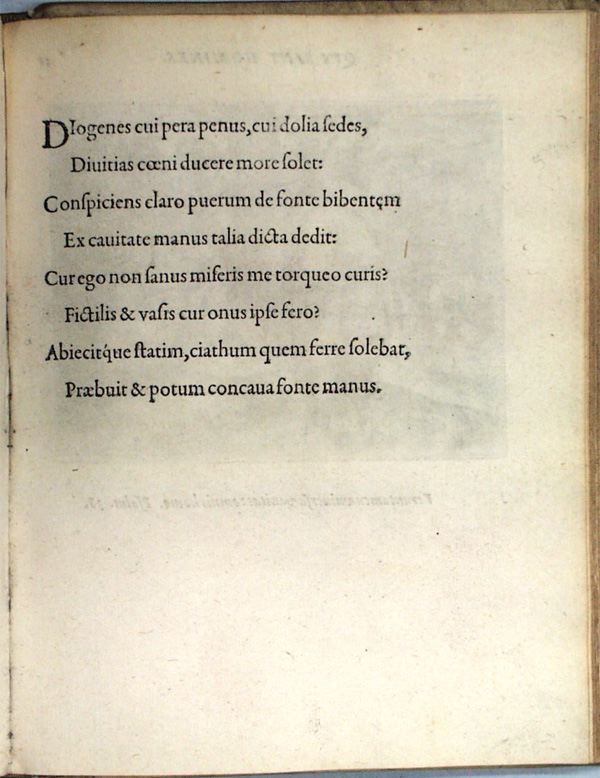 DIogenes cui pera penus, cui dolia ſedes,
Diuitias cœni ducere more ſolet:
Conſpiciens claro puerum de fonte bibentẹm
Ex cauitate manus talia dicta dedit:
Cur ego non ſanus miſeris me torqueo curis?
Fictilis & vaſis cur onus ipſe fero?
Abiecitq́ue ſtatim, ciathum quem ferre ſolebat,
Præbuit & potum concaua fonte manus.